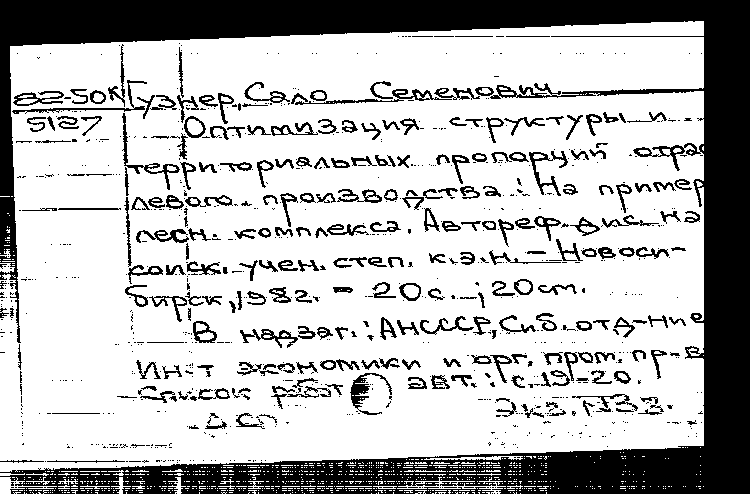 82-50К Гузнер, Сало Семенович
5127 Оптимизация структуры и
территориальных пропорций отрас
левого производства: На пример
лесн. комплекса. Автореф. дис. на
соиск. учен. степ. к.э.н. - Новоси-
бирск, 1982. - 20 с. ; 20 см.
В надзаг.: АН СССР, Сиб. отд-ние
Ин-т экономики и орг. пром. пр-в
Список работ авт.: с. 19-20.
ДСП. Экз. N33.